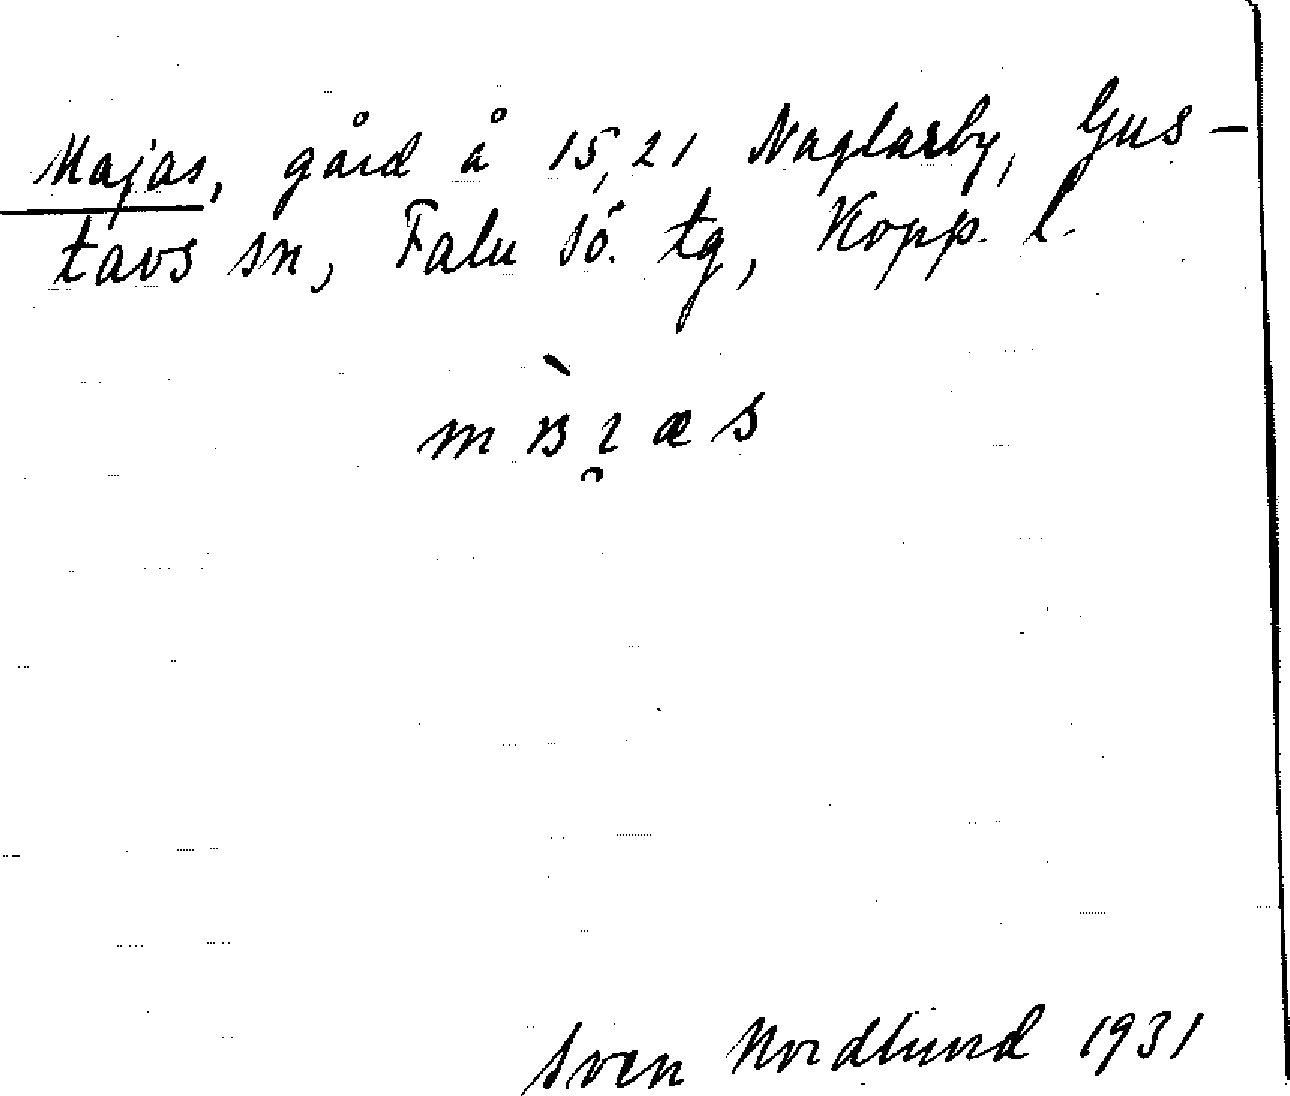 Majas, gård å 15,21 Naglarby, Gus-
tavs sn, Falu sö. tg, Kopp. l.
Sven Nordlund 1931